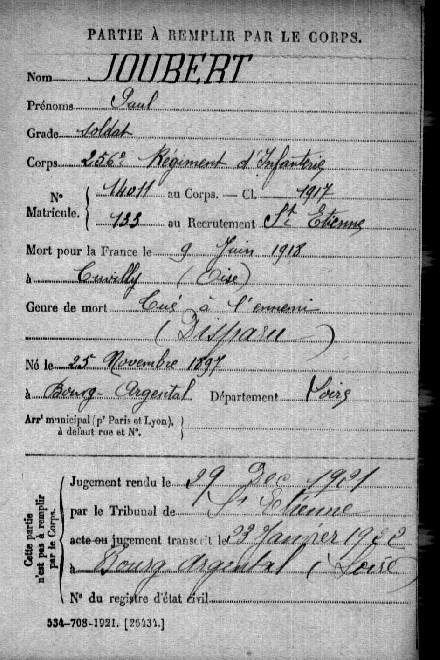 PARTIE À REMPLIR PAR LE CORPS.
Nom JOUBERT
Prénoms Paul
Grade soldat
Corps 256e Régiment d'Infanterie
N° Matricule. { 14011 au Corps. — Cl. 1917
133 au Recrutement St Etienne
Mort pour la France le 9 Juin 1918
à Cuvilly (Oise)
Genre de mort Tué à l'ennemi
(Disparu)
Né le 25 Novembre 1897
à Bourg-Argental Département Loire
Arrt municipal (pr Paris et Lyon),
à défaut rue et N°.
Cette partie n'est pas à remplir par le Corps.
Jugement rendu le 29 Dec 1921
par le Tribunal de St Etienne
acte ou jugement transcrit le 23 Janvier 1922
à Bourg Argental (Loire)
N° du registre d'état civil
534-708-1921. [26434.]